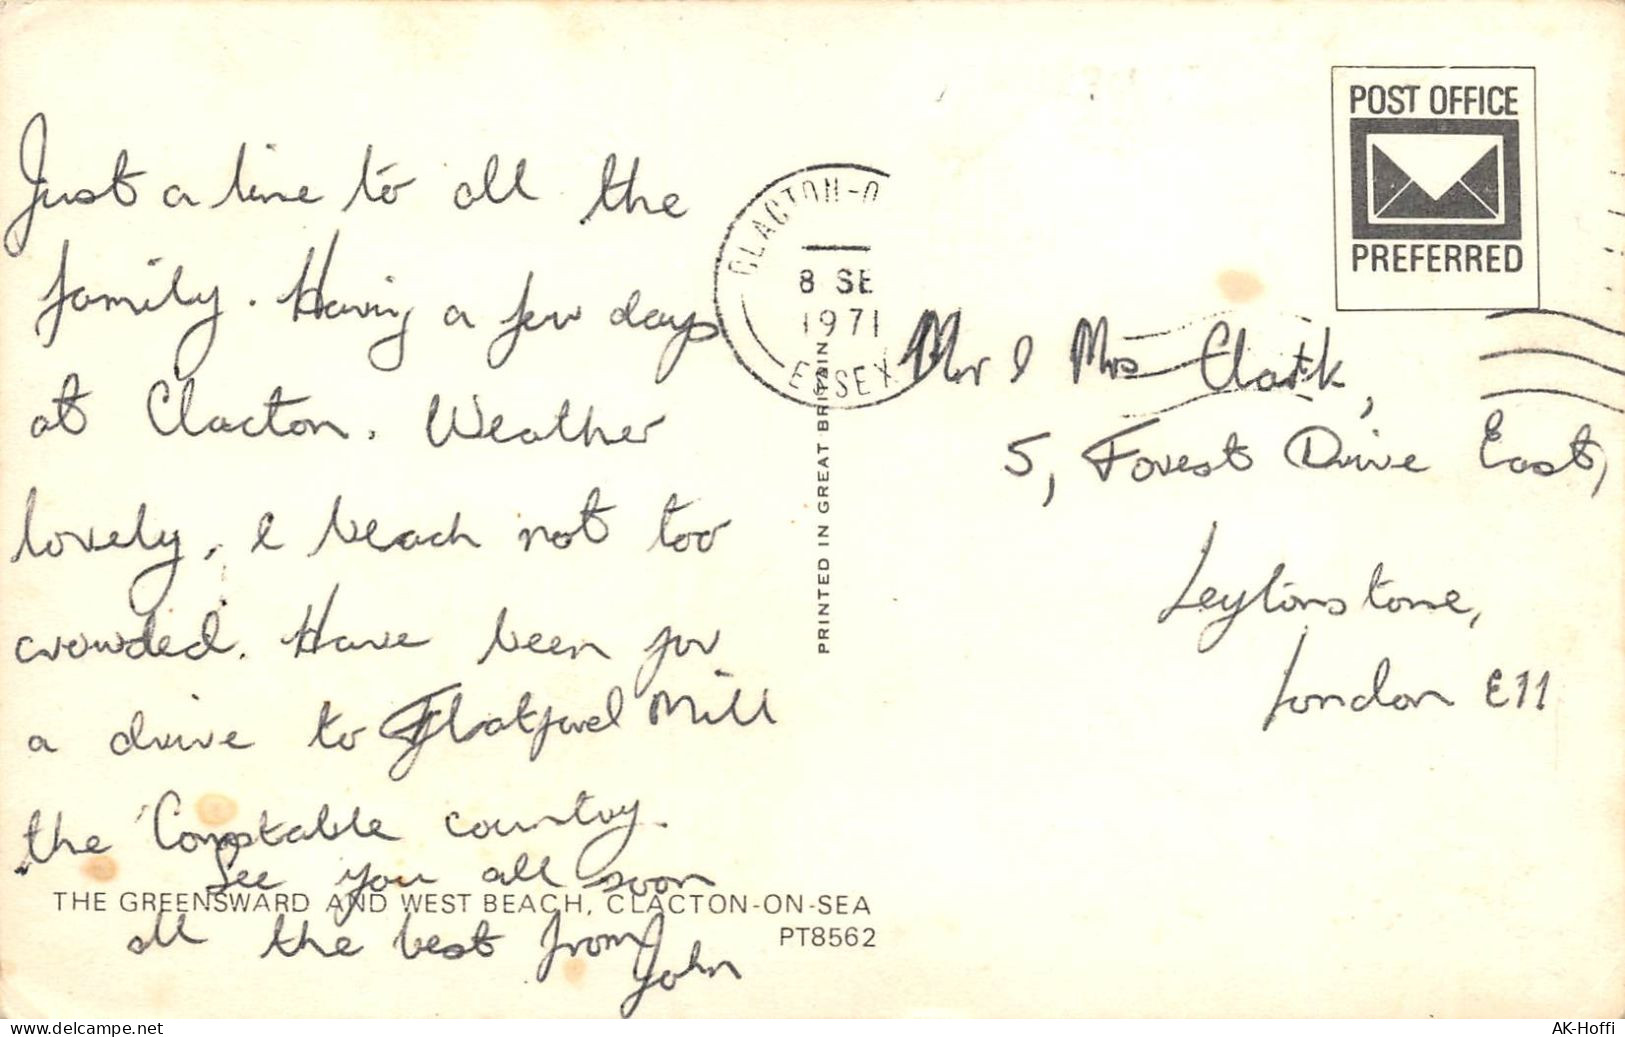 Just a line to all the
family. Having a few days
at Clacton. Weather
lovely, & beach not too
crowded. Have been for
a drive to Flatford Mill
the Constable country.
See you all soon
all the best from
John
THE GREENSWARD AND WEST BEACH, CLACTON-ON-SEA
PT8562
PRINTED IN GREAT BRITAIN
CLACTON-O
8 SE
1971
ESSEX
POST OFFICE
PREFERRED
Mr & Mrs Clark,
5, Forest Drive East,
Leytonstone,
London E11
www.delcampe.net
AK-Hoffi